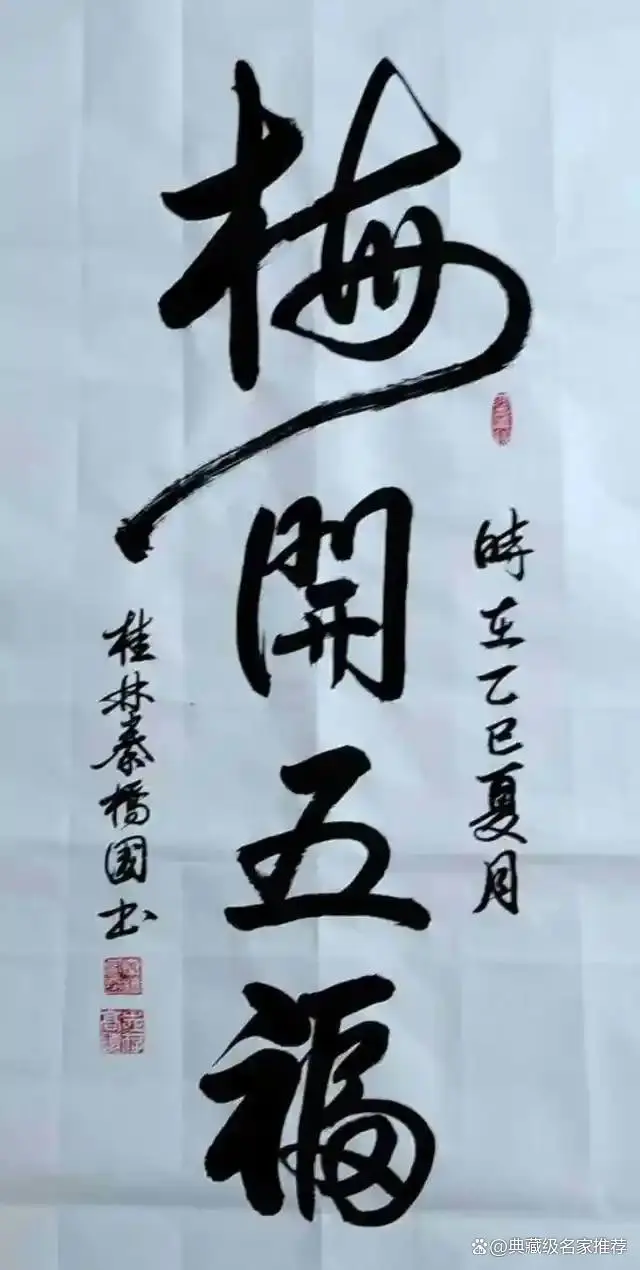 梅開五福
時在乙巳夏月
桂林秦橋國书
@典藏级名家推荐